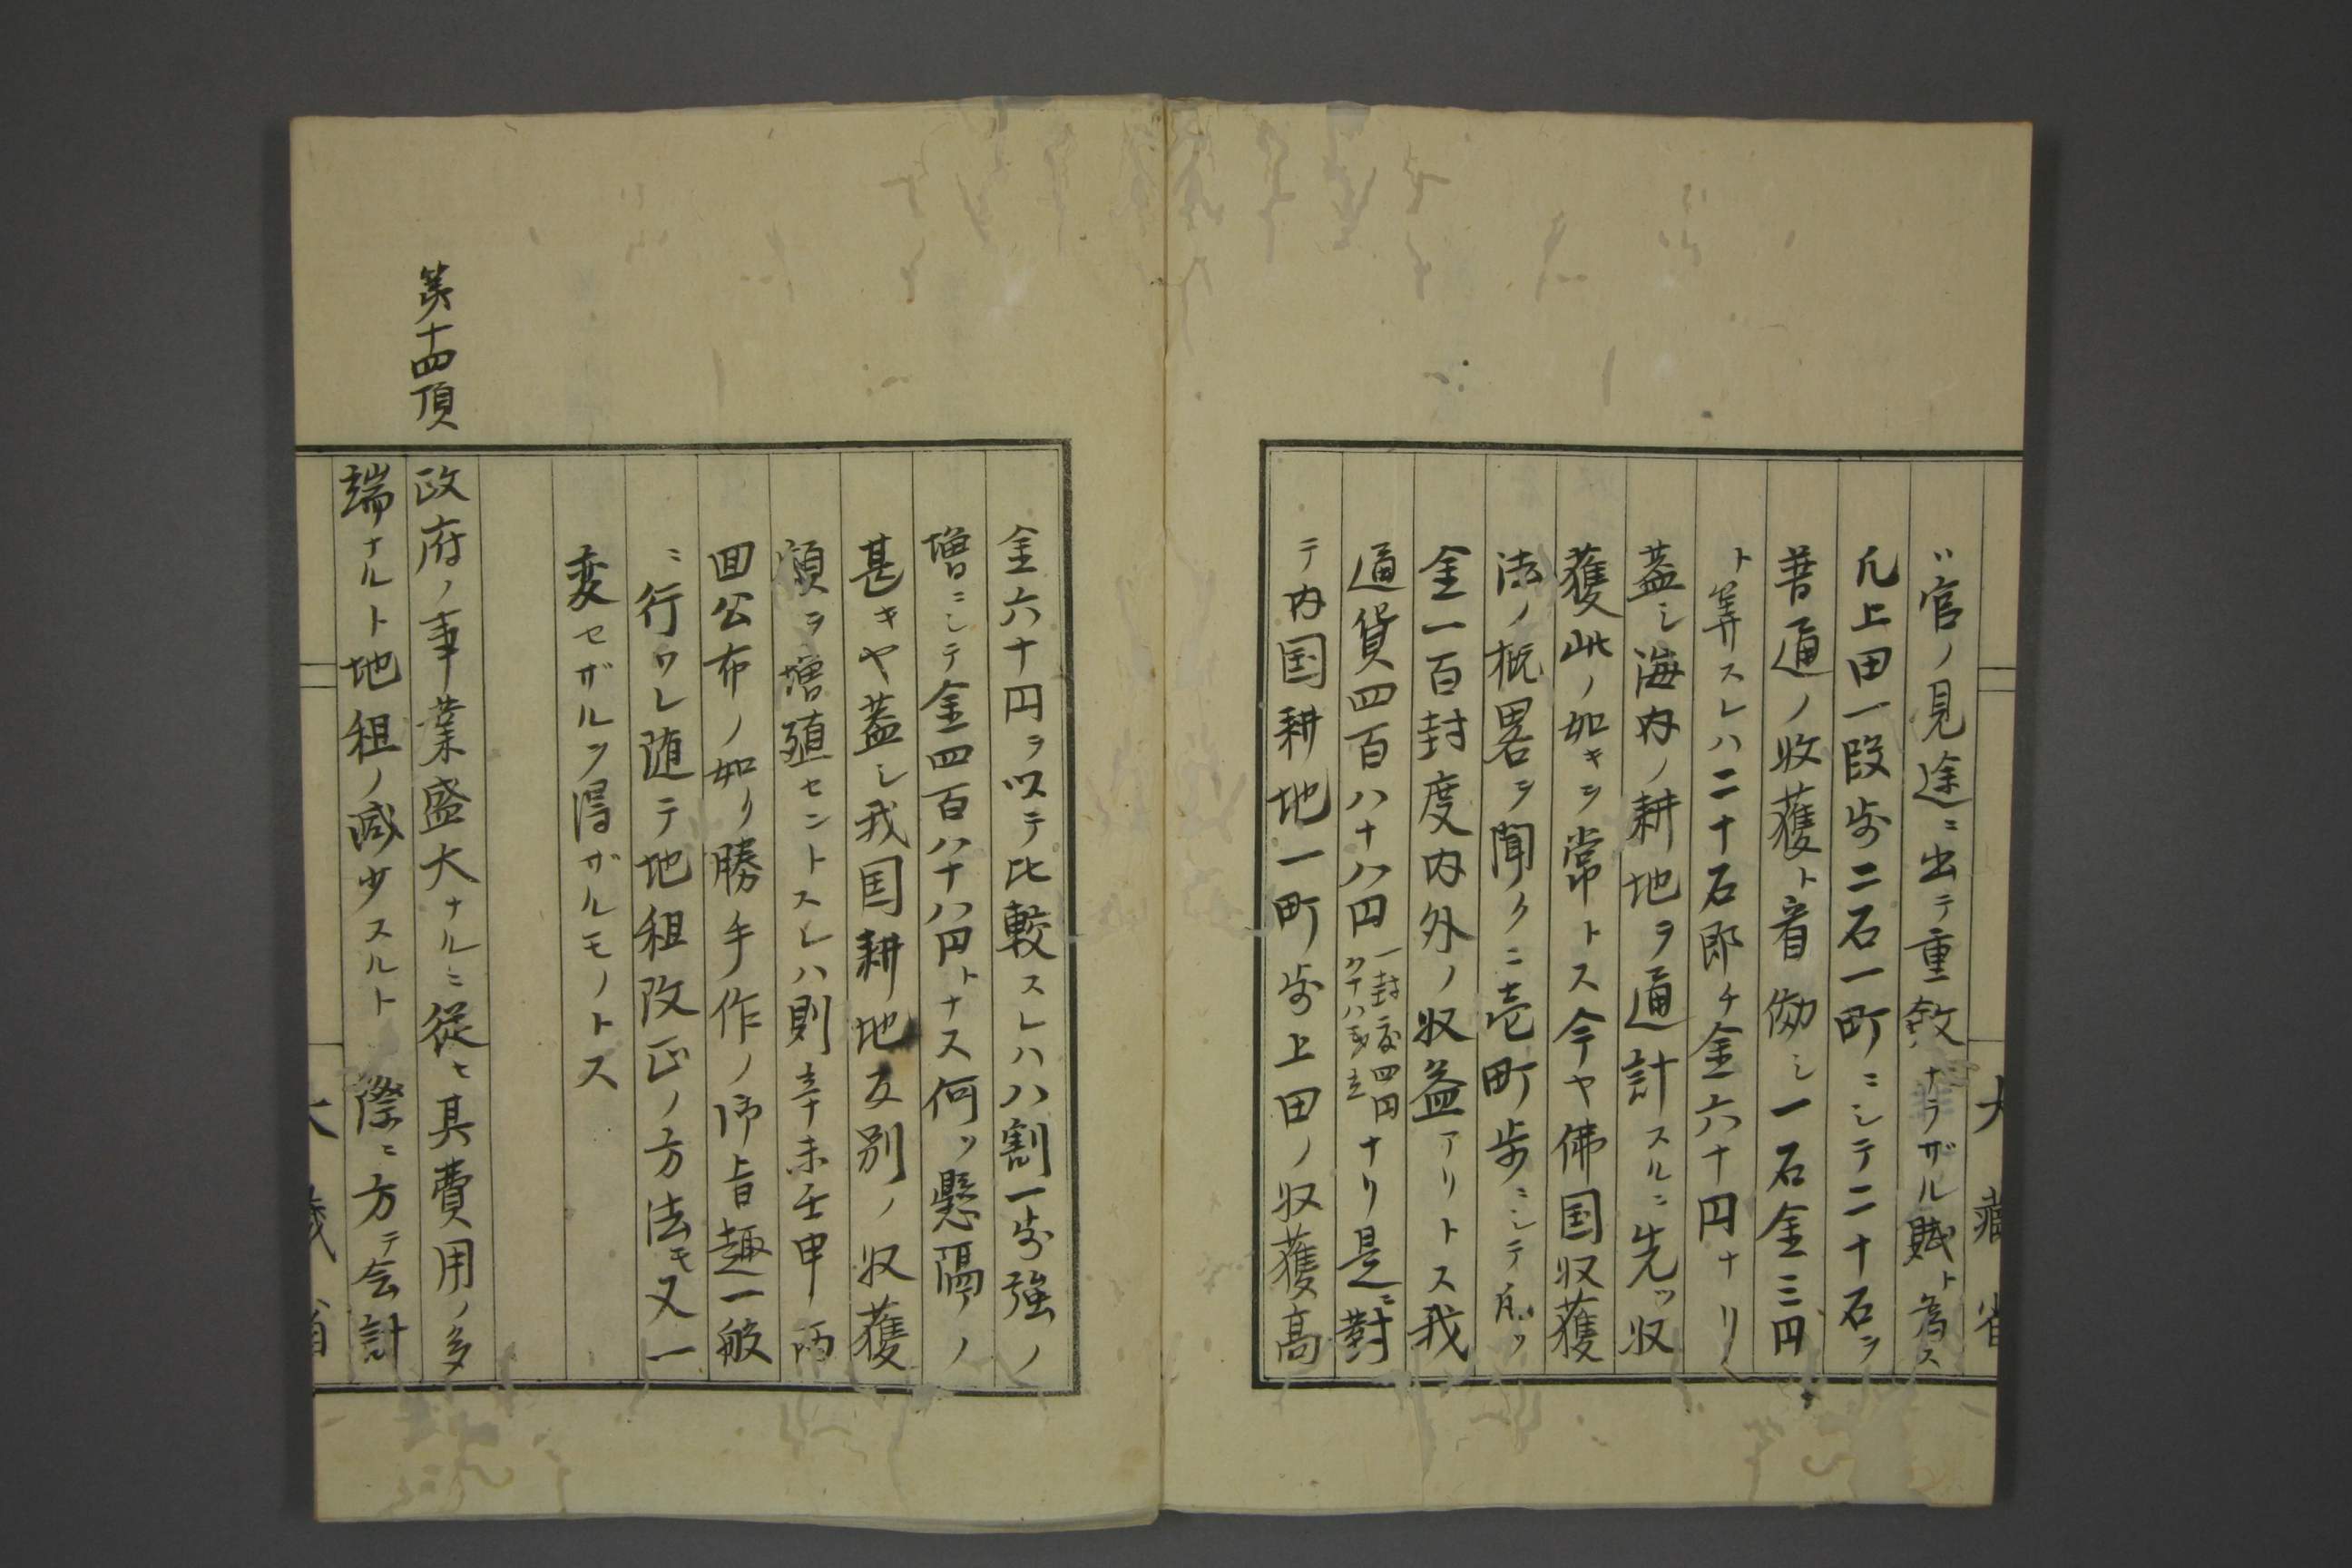 大藏省
バ官ノ見途ニ出テ重斂ナラザル賦ト為ス
凡上田一段歩二石一町ニシテ二十石ヲ
普通ノ收獲ト看傚シ一石金三円
ト算スレハ二十石即チ金六十円ナリ
蓋シ海内ノ耕地ヲ通計スルニ先ツ収
獲此ノ如キヲ常トス今ヤ佛国収獲
法ノ概畧ヲ聞クニ壱町歩ニシテ凡ソ
金一百封度内外ノ収益アリトス我
通貨四百八十八円一封度四円ナリ是ニ對
テ内国耕地一町歩上田ノ収獲高
金六十円ヲ以テ比較スレハ八割一歩強ノ
増ニシテ金四百八十八円トナス何ソ懸隔ノ
甚キヤ蓋シ我国耕地反別ノ収獲
額ヲ増殖セントスレハ則辛未壬申両
回公布ノ如リ勝手作ノ御旨趣一般
ニ行ワレ随テ地租改正ノ方法モ又一
変セザルヲ得ザルモノトス
第十四項
政府ノ事業盛大ナルニ從ヒ其費用ノ多
端ナルト地租ノ減少スルト際ニ方テ会計
大藏省